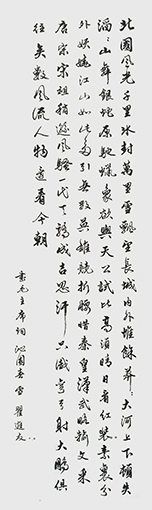 北國風光千里冰封萬里雪飄望長城內外惟餘莽〻大河上下頓失
滔〻山舞銀蛇原馳蠟象欲與天公試比高須晴日看紅裝素裹分
外妖嬈江山如此多嬌引無數英雄競折腰惜秦皇漢武略輸文采
唐宗宋祖稍遜風騷一代天驕成吉思汗只識彎弓射大雕俱
往矣數風流人物還看今朝
書毛主席詞沁園春雪